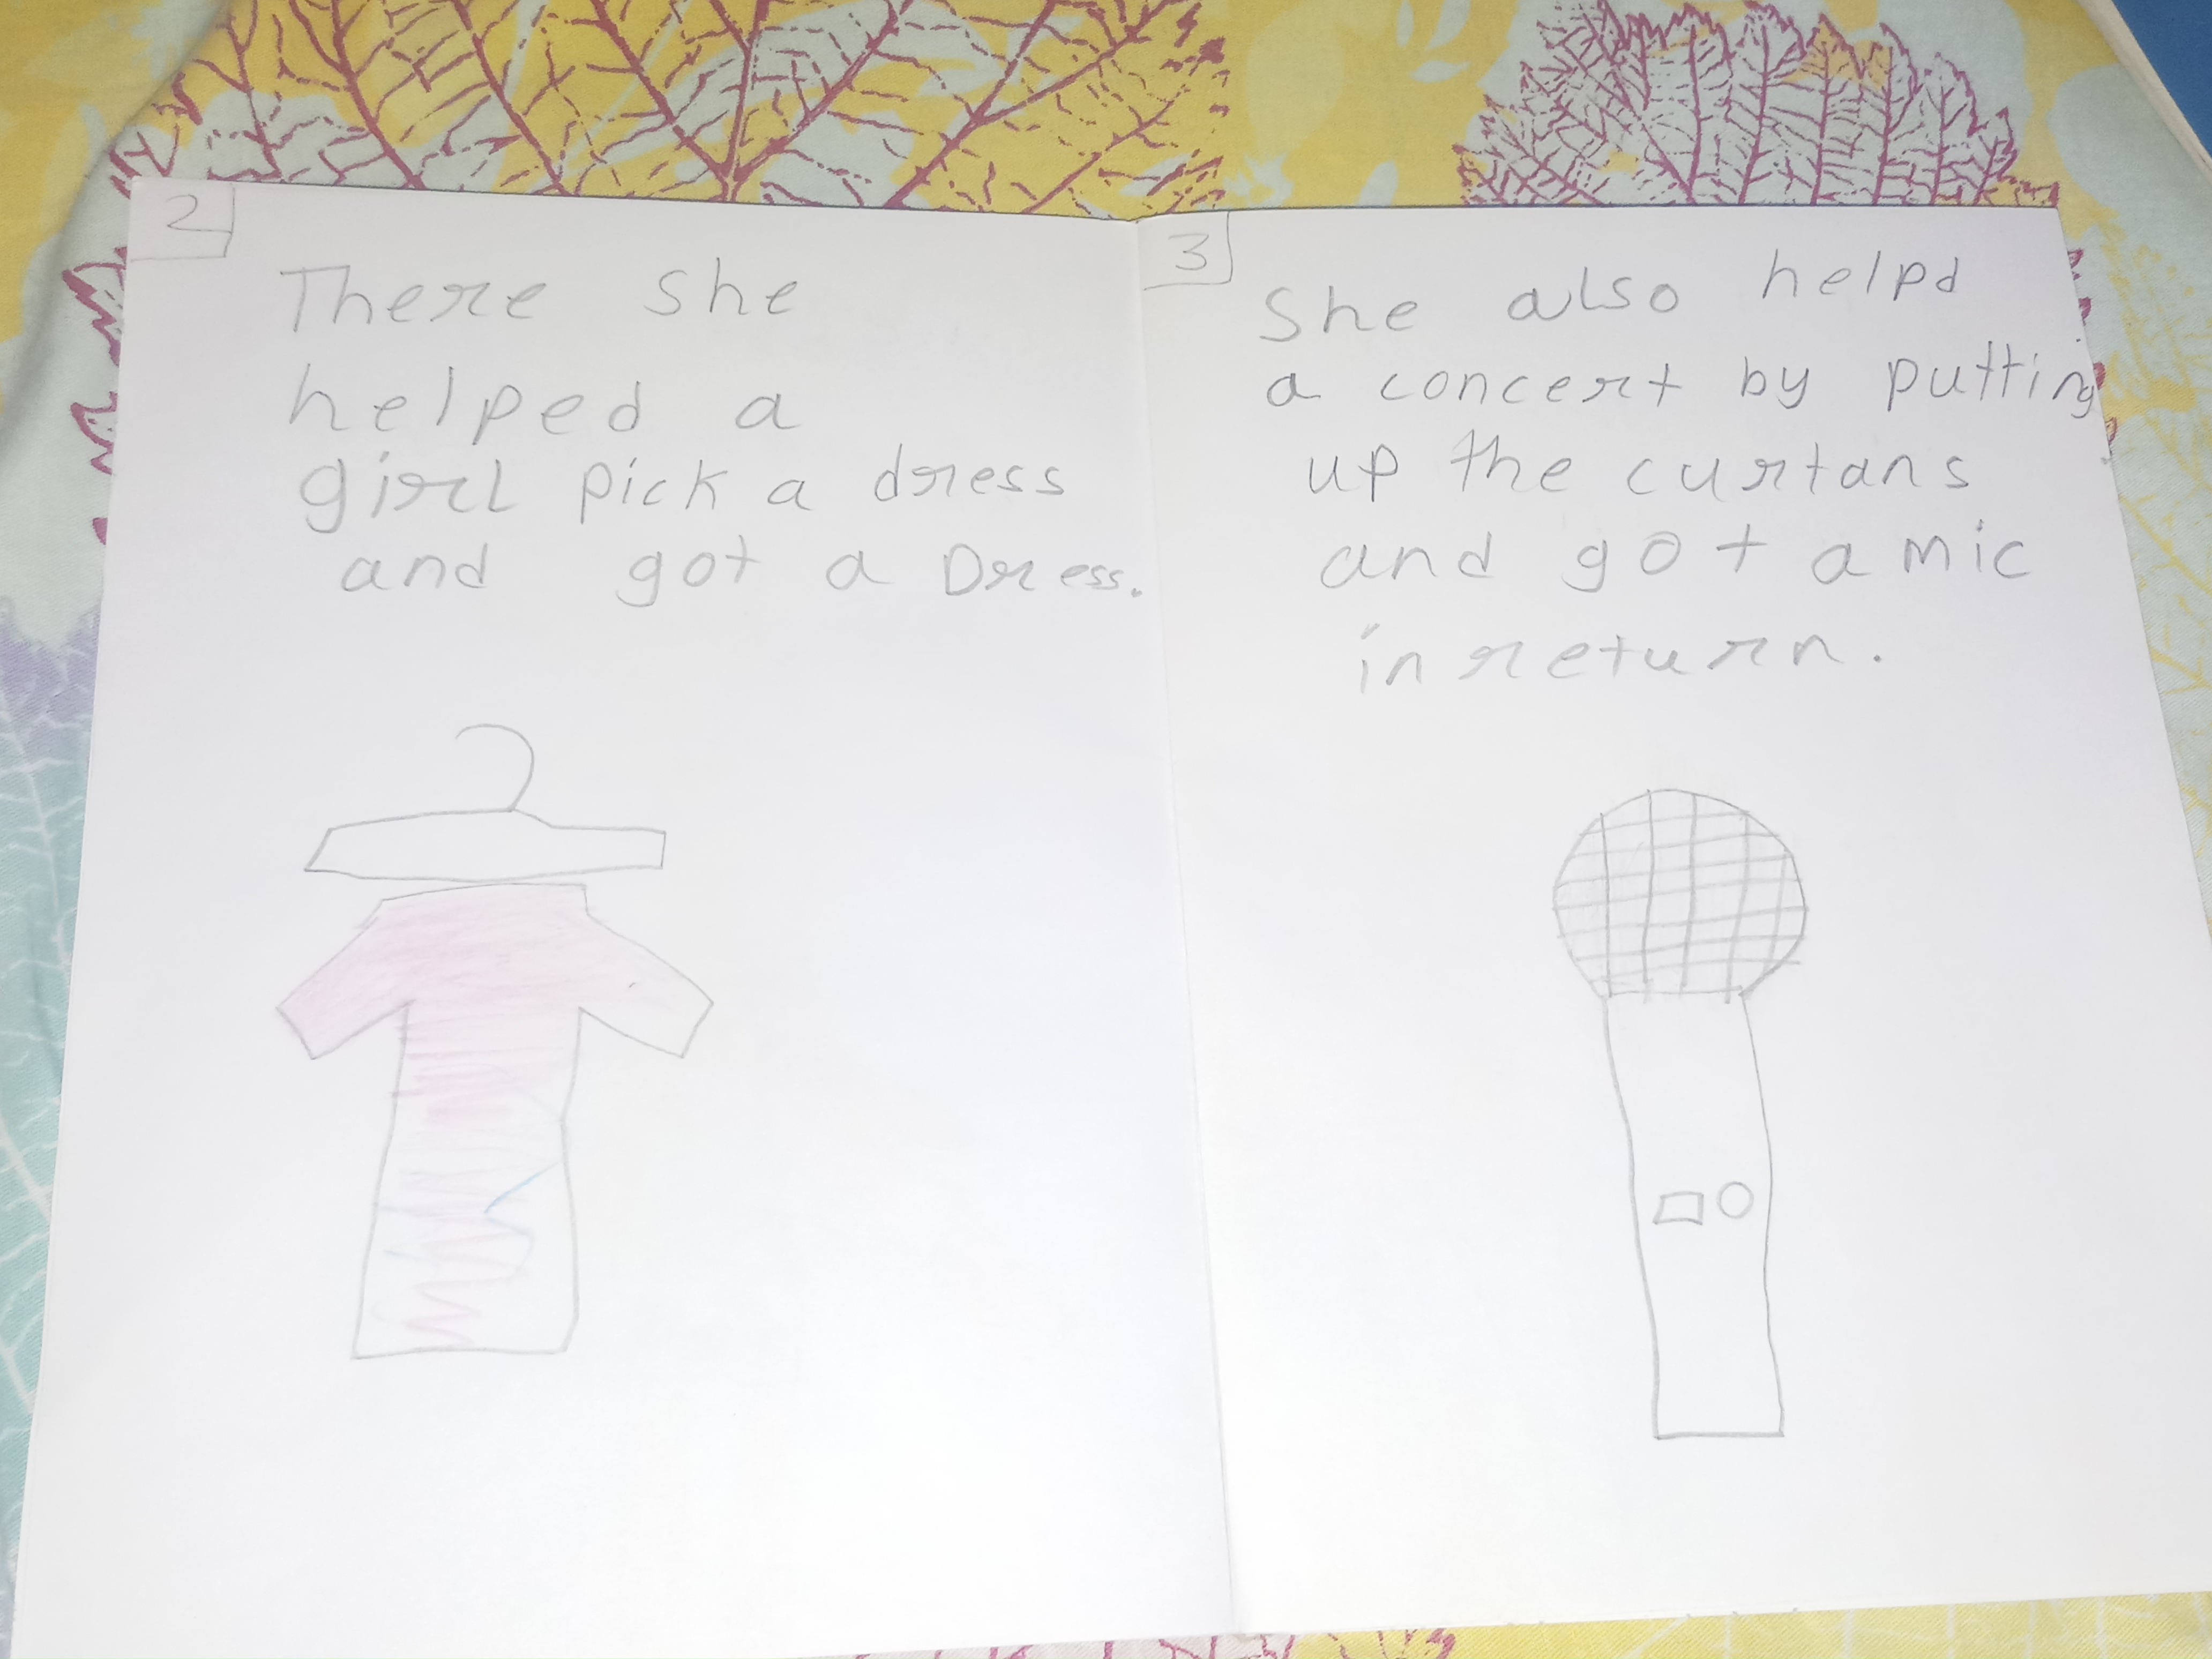 2
There she
helped a
girl pick a dress
and got a Dress.
3
She also helpd
a concert by putting
up the curtans
and got a mic
in return.